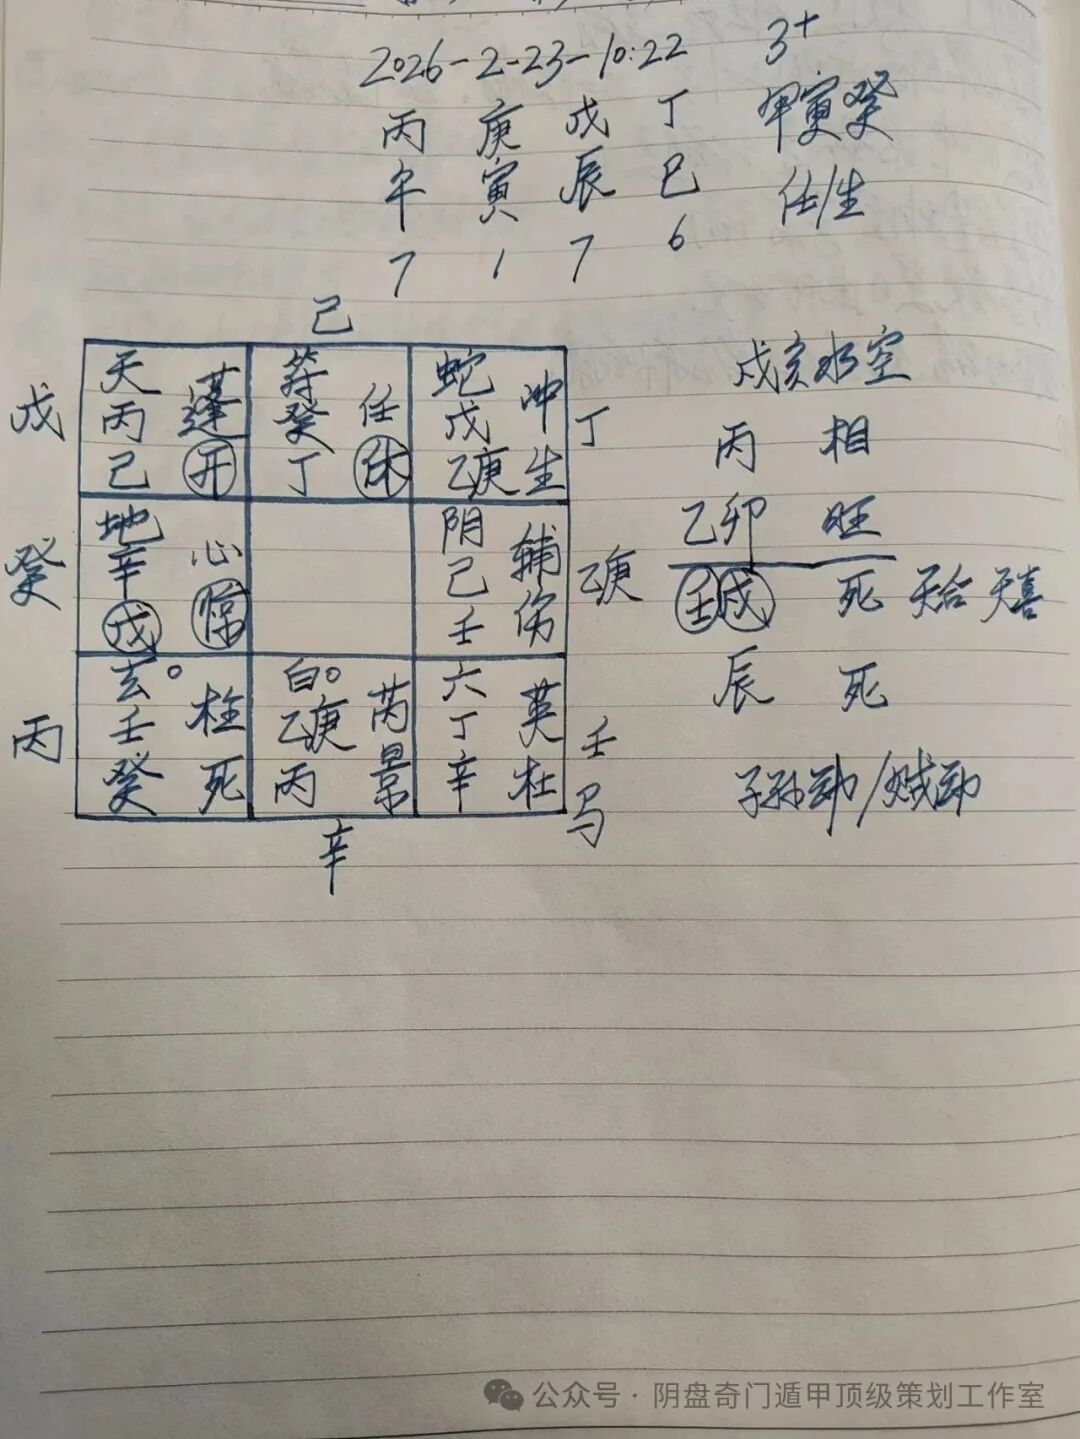 2026-2-23-10:22 3+
丙 庚 戊 丁 甲寅癸
午 寅 辰 巳 任/生
7 1 7 6
己
天 蓬 符 任 蛇 冲
戊 丙 癸 戊 丁
己 开 丁 休 乙庚 生
地 心 阴 辅
癸 辛 己 乙庚
戊 惊 壬 伤
玄 柱 白 芮 六 英
丙 壬 乙庚 丁 壬
癸 死 丙 景 辛 杜 马
辛
戌亥水空
丙 相
乙卯 旺
壬戌 死 天合 天喜
辰 死
子孙动/贼动
公众号·阴盘奇门遁甲顶级策划工作室